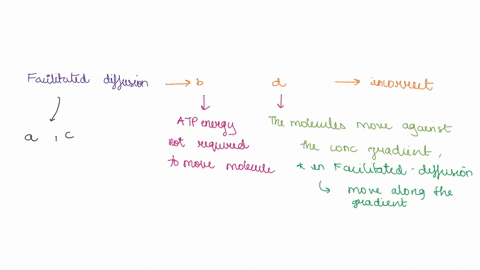 Facilitated diffusion → b d → incorrect
a , c
ATP energy
not required
to move molecule
The molecules move against
the conc gradient,
* in Facilitated diffusion
↳ move along the
gradient